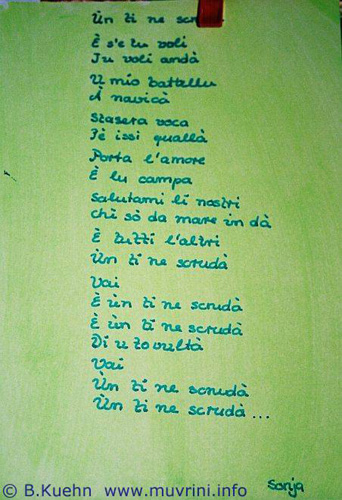 Ùn ti ne scr
È s'e tu voli
Tu voli andà
U mio battellu
À navicà
Stasera voca
Pè issi quallà
Porta l'amore
È lu campa
Salutami li nostri
chi sò da mare in dà
È tutti l'altri
Ùn ti ne scrudà
Vai
È ùn ti ne scrudà
È ùn ti ne scrudà
Di u to vultà
Vai
Ùn ti ne scrudà
Ùn ti ne scrudà ...
Sonja
© B.Kuehn www.muvrini.info